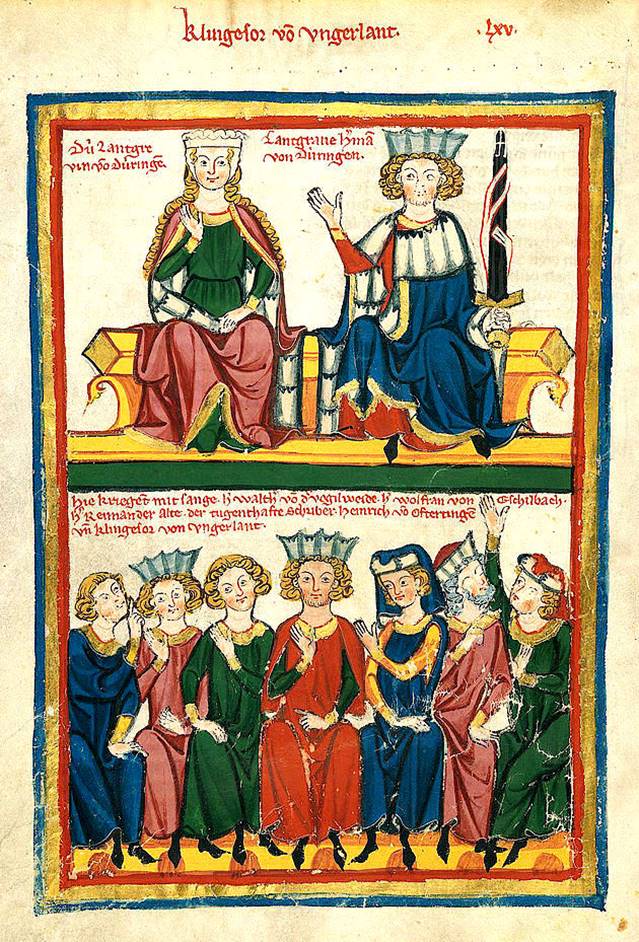 Klingesor võ vngerlant.
.lxv.
Dú Lantgre
vin võ Dúringē.
Lantgraue h͛mã
von Dúringen.
hie krieget mit sange. h͛ walth͛ võ d͛ vogilweide. h͛ wolfran von Eschilbach.
h͛ Reinmander Alte. der tugenthafte Schriber. heinrich vō Ofteringē
vñ klingesor von vngerlant.